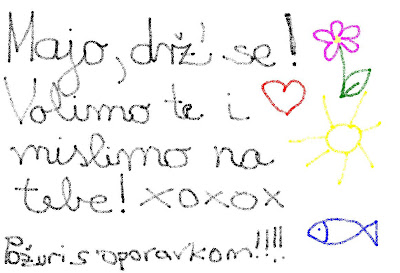 Majo, drž' se!
Volimo te i
mislimo na
tebe! xoxox
Požuri s oporavkom!!!!